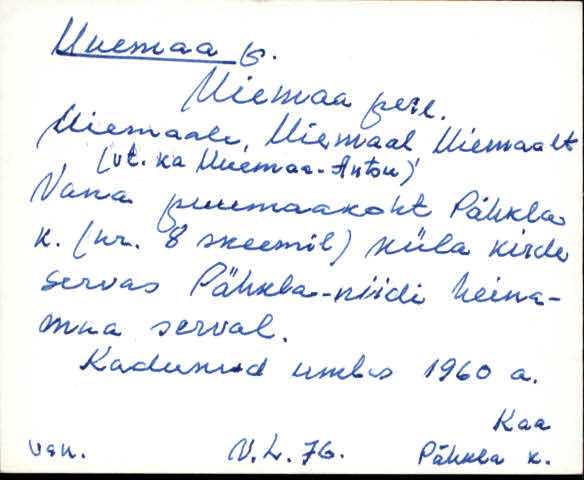 Uuemaa p.
Uiemaa pere.
Uiemaale, Uiemaal Uiemaalt
(vt. ka Uuemaa-Antsu)
Vana puumaakoht Pähkla
k. (nr. 8 skeemil) küla kirde
servas Pähkla-niidi heina-
maa serval.
Kadunud umbes 1960 a.
Kaa
van. V.L. 76. Pähkla k.